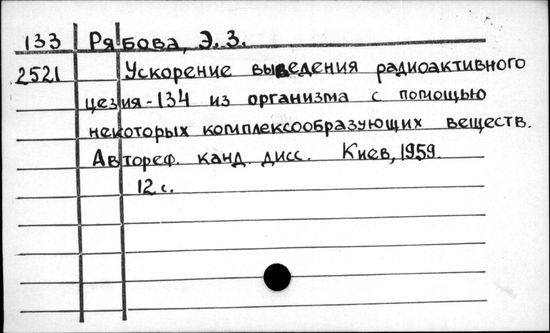 133 Рябова, Э. З.
2521 Ускорение выведения радиоактивного
цезия-134 из организма с помощью
некоторых комплексообразующих веществ.
Автореф. канд. дисс. Киев, 1959.
12 с.